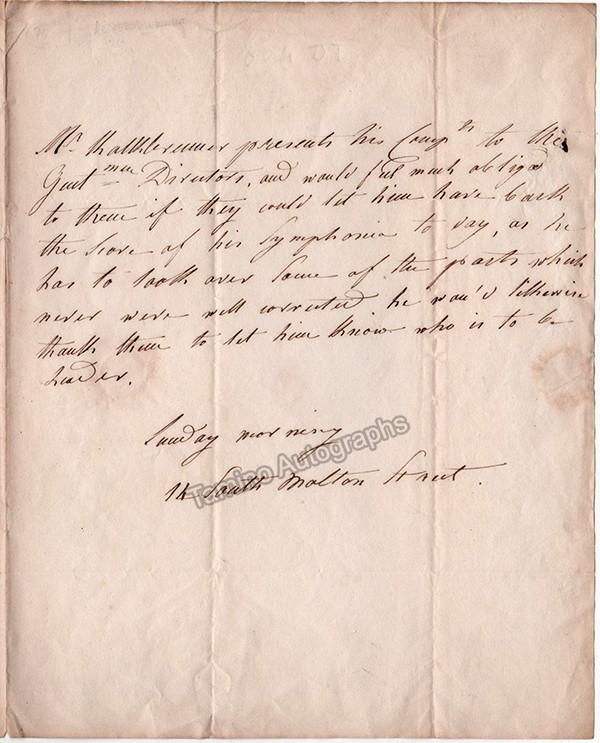 Mr Kalkbrenner presents his Compts to the
Gentmen Directors, and would feel much obliged
to them if they could let him have back
the Score of his Symphonia to day, as he
has to look over some of the parts which
never were well corrected he wou'd likewise
thank them to let him know who is to be
Leader.
Sunday morning
14 South Molton Street.
Tamino Autographs